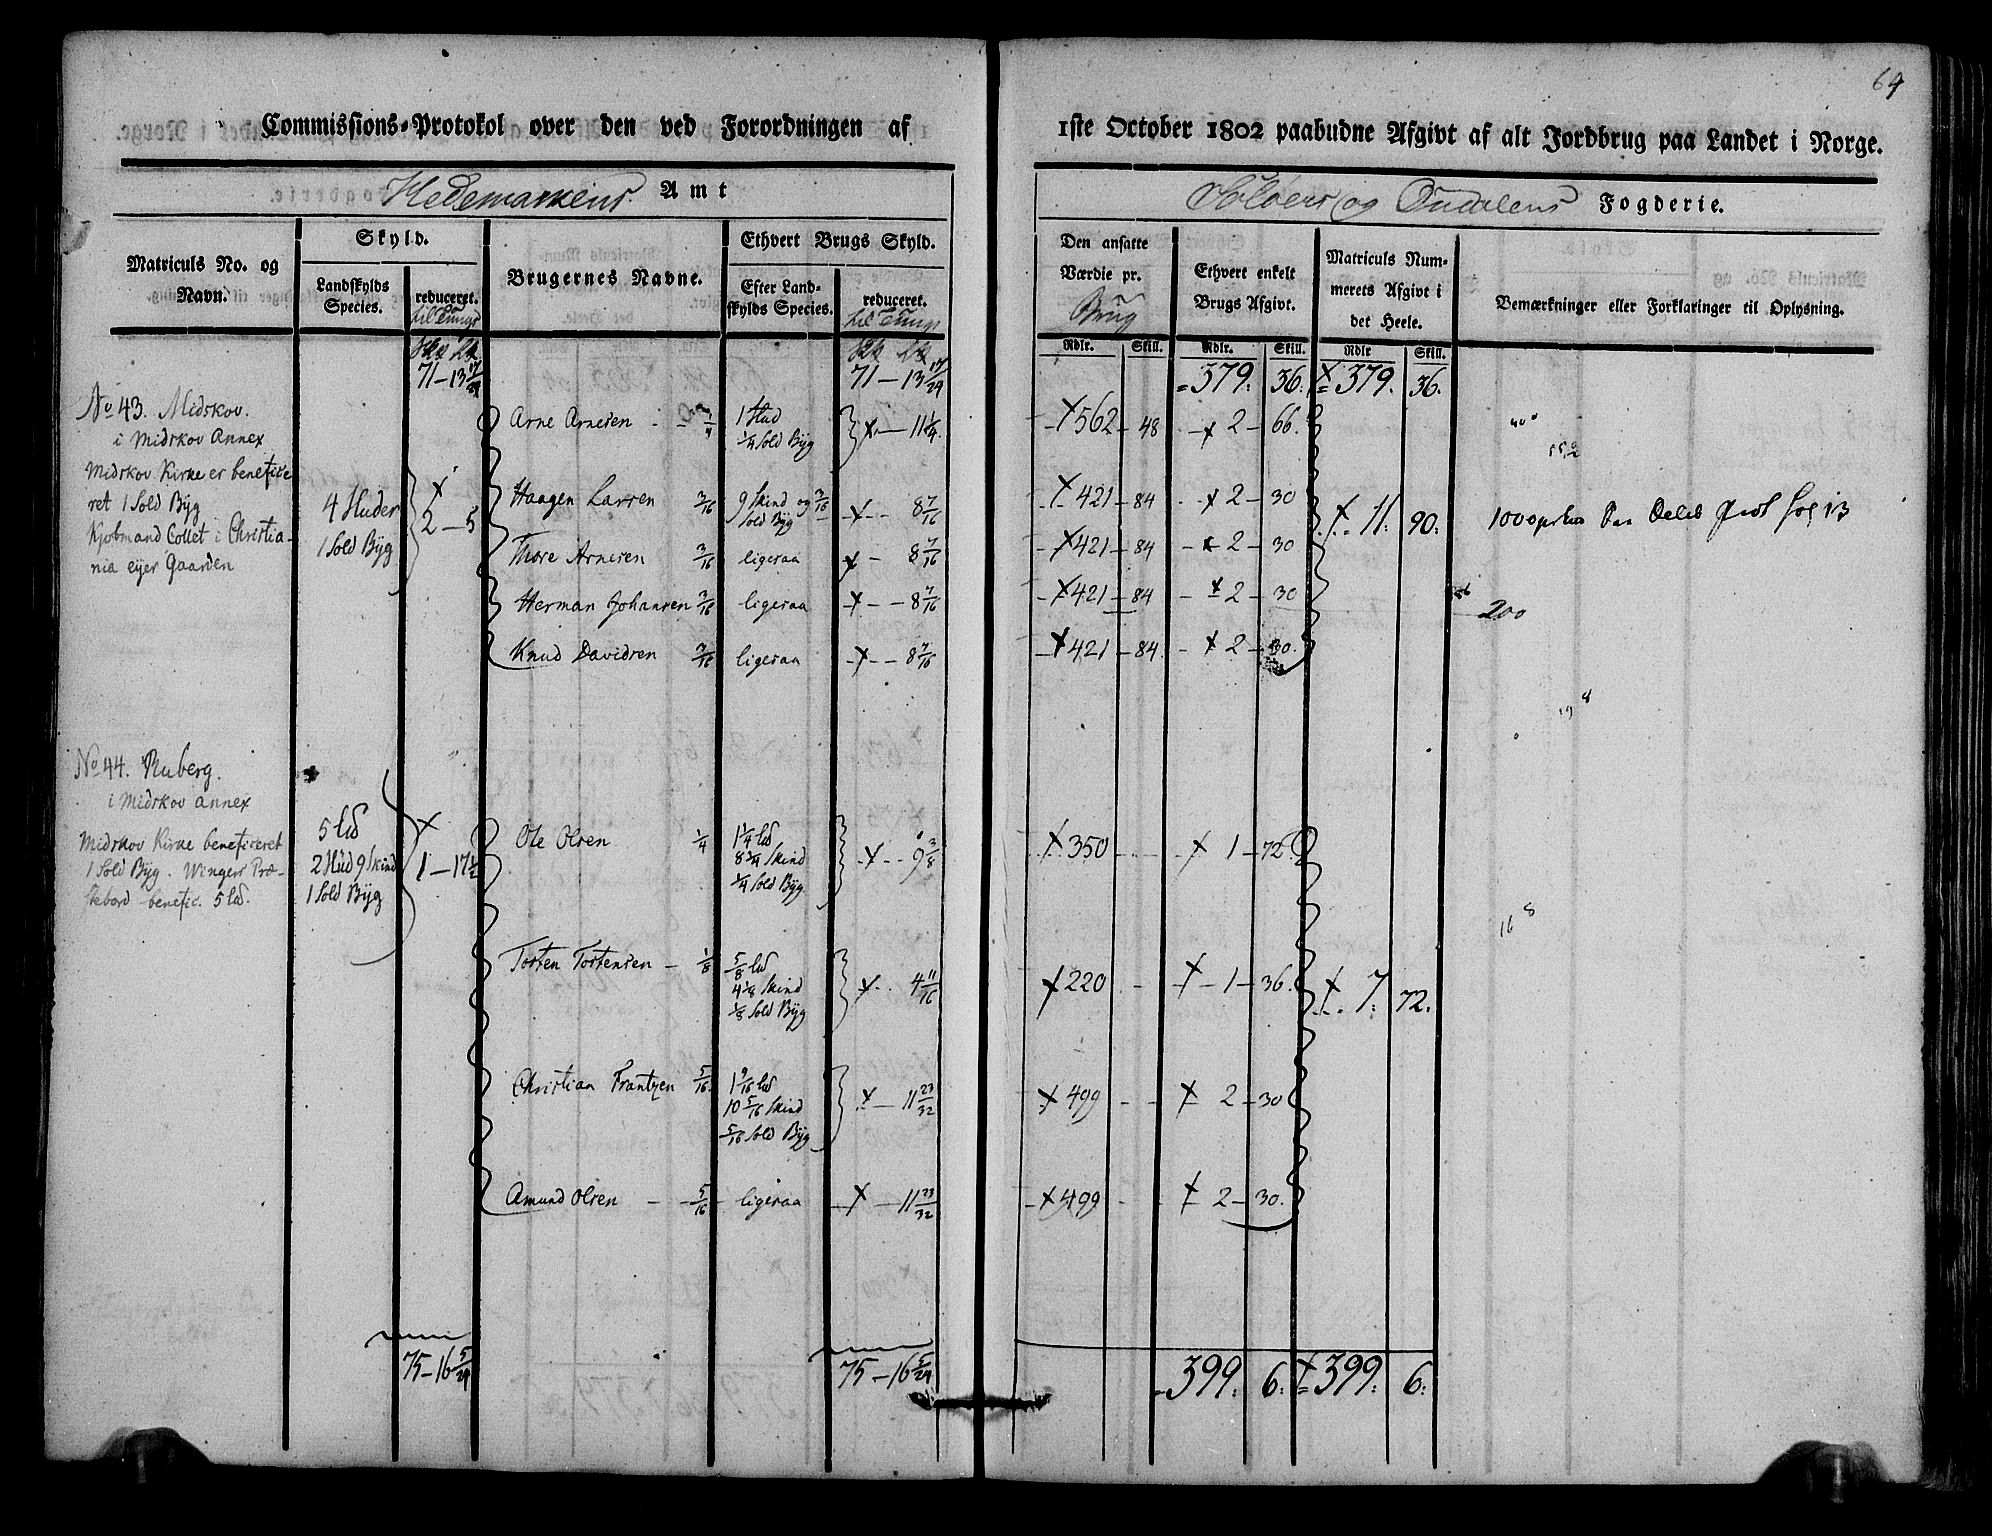 64
Commissions-Protokol over den ved Forordningen af 1ste October 1802 paabudne Afgivt af alt Jordbrug paa Landet i Norge.
Hedemarkens Amt
Soløers og Oudalens Fogderie.
Matriculs No. og Navn.
Skyld.
Landskylds Species.
reduceret.
til Tunge
Brugernes Navne.
Ethvert Brugs Skyld.
Efter Landskylds Species.
reduceret.
til Tunge
Den ansatte Værdie pr.
Brug
Ethvert enkelt Brugs Afgivt.
Matriculs Nummerets Afgivt i det Heele.
Bemærkninger eller Forklaringer til Oplysning.
Rdlr. Skill. Rdlr. Skill. Rdlr Skill.
71 - 13 17/24 71 - 13 17/24 379. 36. 379. 36.
No 43. Midskov.
i Midskov Annex
Midskov Kirke er benefice
ret 1 Sold Byg
Kjøbmand Collet i Christia-
nia eijer Gaarden
4 Huder
1 Sold Byg
2 - 5
Arne Arnesen - 1/4 1 Hud
1/4 Sold Byg - 11 1/4. 562 - 48 - 2 - 66.
Haagen Larsen 3/16 9 Skind og 3/16
Sold Byg - 8 7/16 421 - 84 - 2 - 30
11. 90.
Thore Arnesen 3/16 ligesaa - 8 7/16 421 - 84 - 2 - 30
Herman Johansen 3/16 ligesaa - 8 7/16 421 - 84 - 2 - 30
200
Knud Davidsen 3/16 ligesaa - 8 7/16 421 - 84. - 2 - 30.
No 44. Ruberg.
i Midskov Annex
Midskov Kirke beneficeret
1 Sold Byg. Wingers Præ-
stebord benefic. 5 ld.
5 ld
2 Hud 9 Skind
1 Sold Byg
1 - 17 1/2
Ole Olsen 1/4 1 1/4 ld
8 1/4 Skind
1/4 Sold Byg - 9 3/8 350 1 - 72.
Tosten Tostensen - 1/8 5/8 ld
4 1/8 Skind
1/8 Sold Byg - 4 11/16 220 - 1 - 36.
7. 72.
16 8
Christian Frantzen 5/16 1 9/16 ld
10 5/16 Skind
5/16 Sold Byg - 11 23/32 499 2 - 30
Amund Olsen - 5/16 - ligesaa - 11 23/32 499 2 - 30.
75 - 16 5/24 75 - 16 5/24 399. 6. 399. 6.